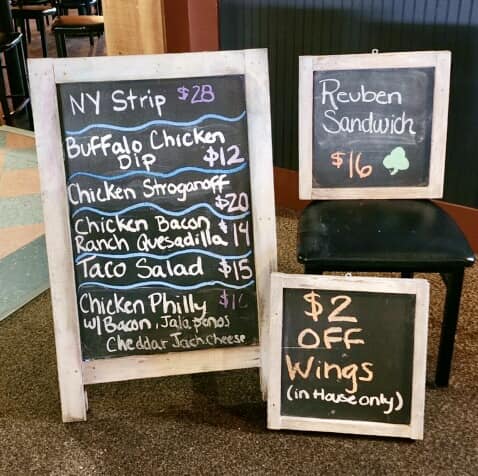 NY Strip $28
Buffalo Chicken
Dip $12
Chicken Stroganoff
$20
Chicken Bacon
Ranch Quesadilla $14
Taco Salad $15
Chicken Philly
w/ Bacon, Jalapenos
Cheddar Jach Cheese
Reuben
Sandwich
$16
$2
OFF
Wings
(in House only)